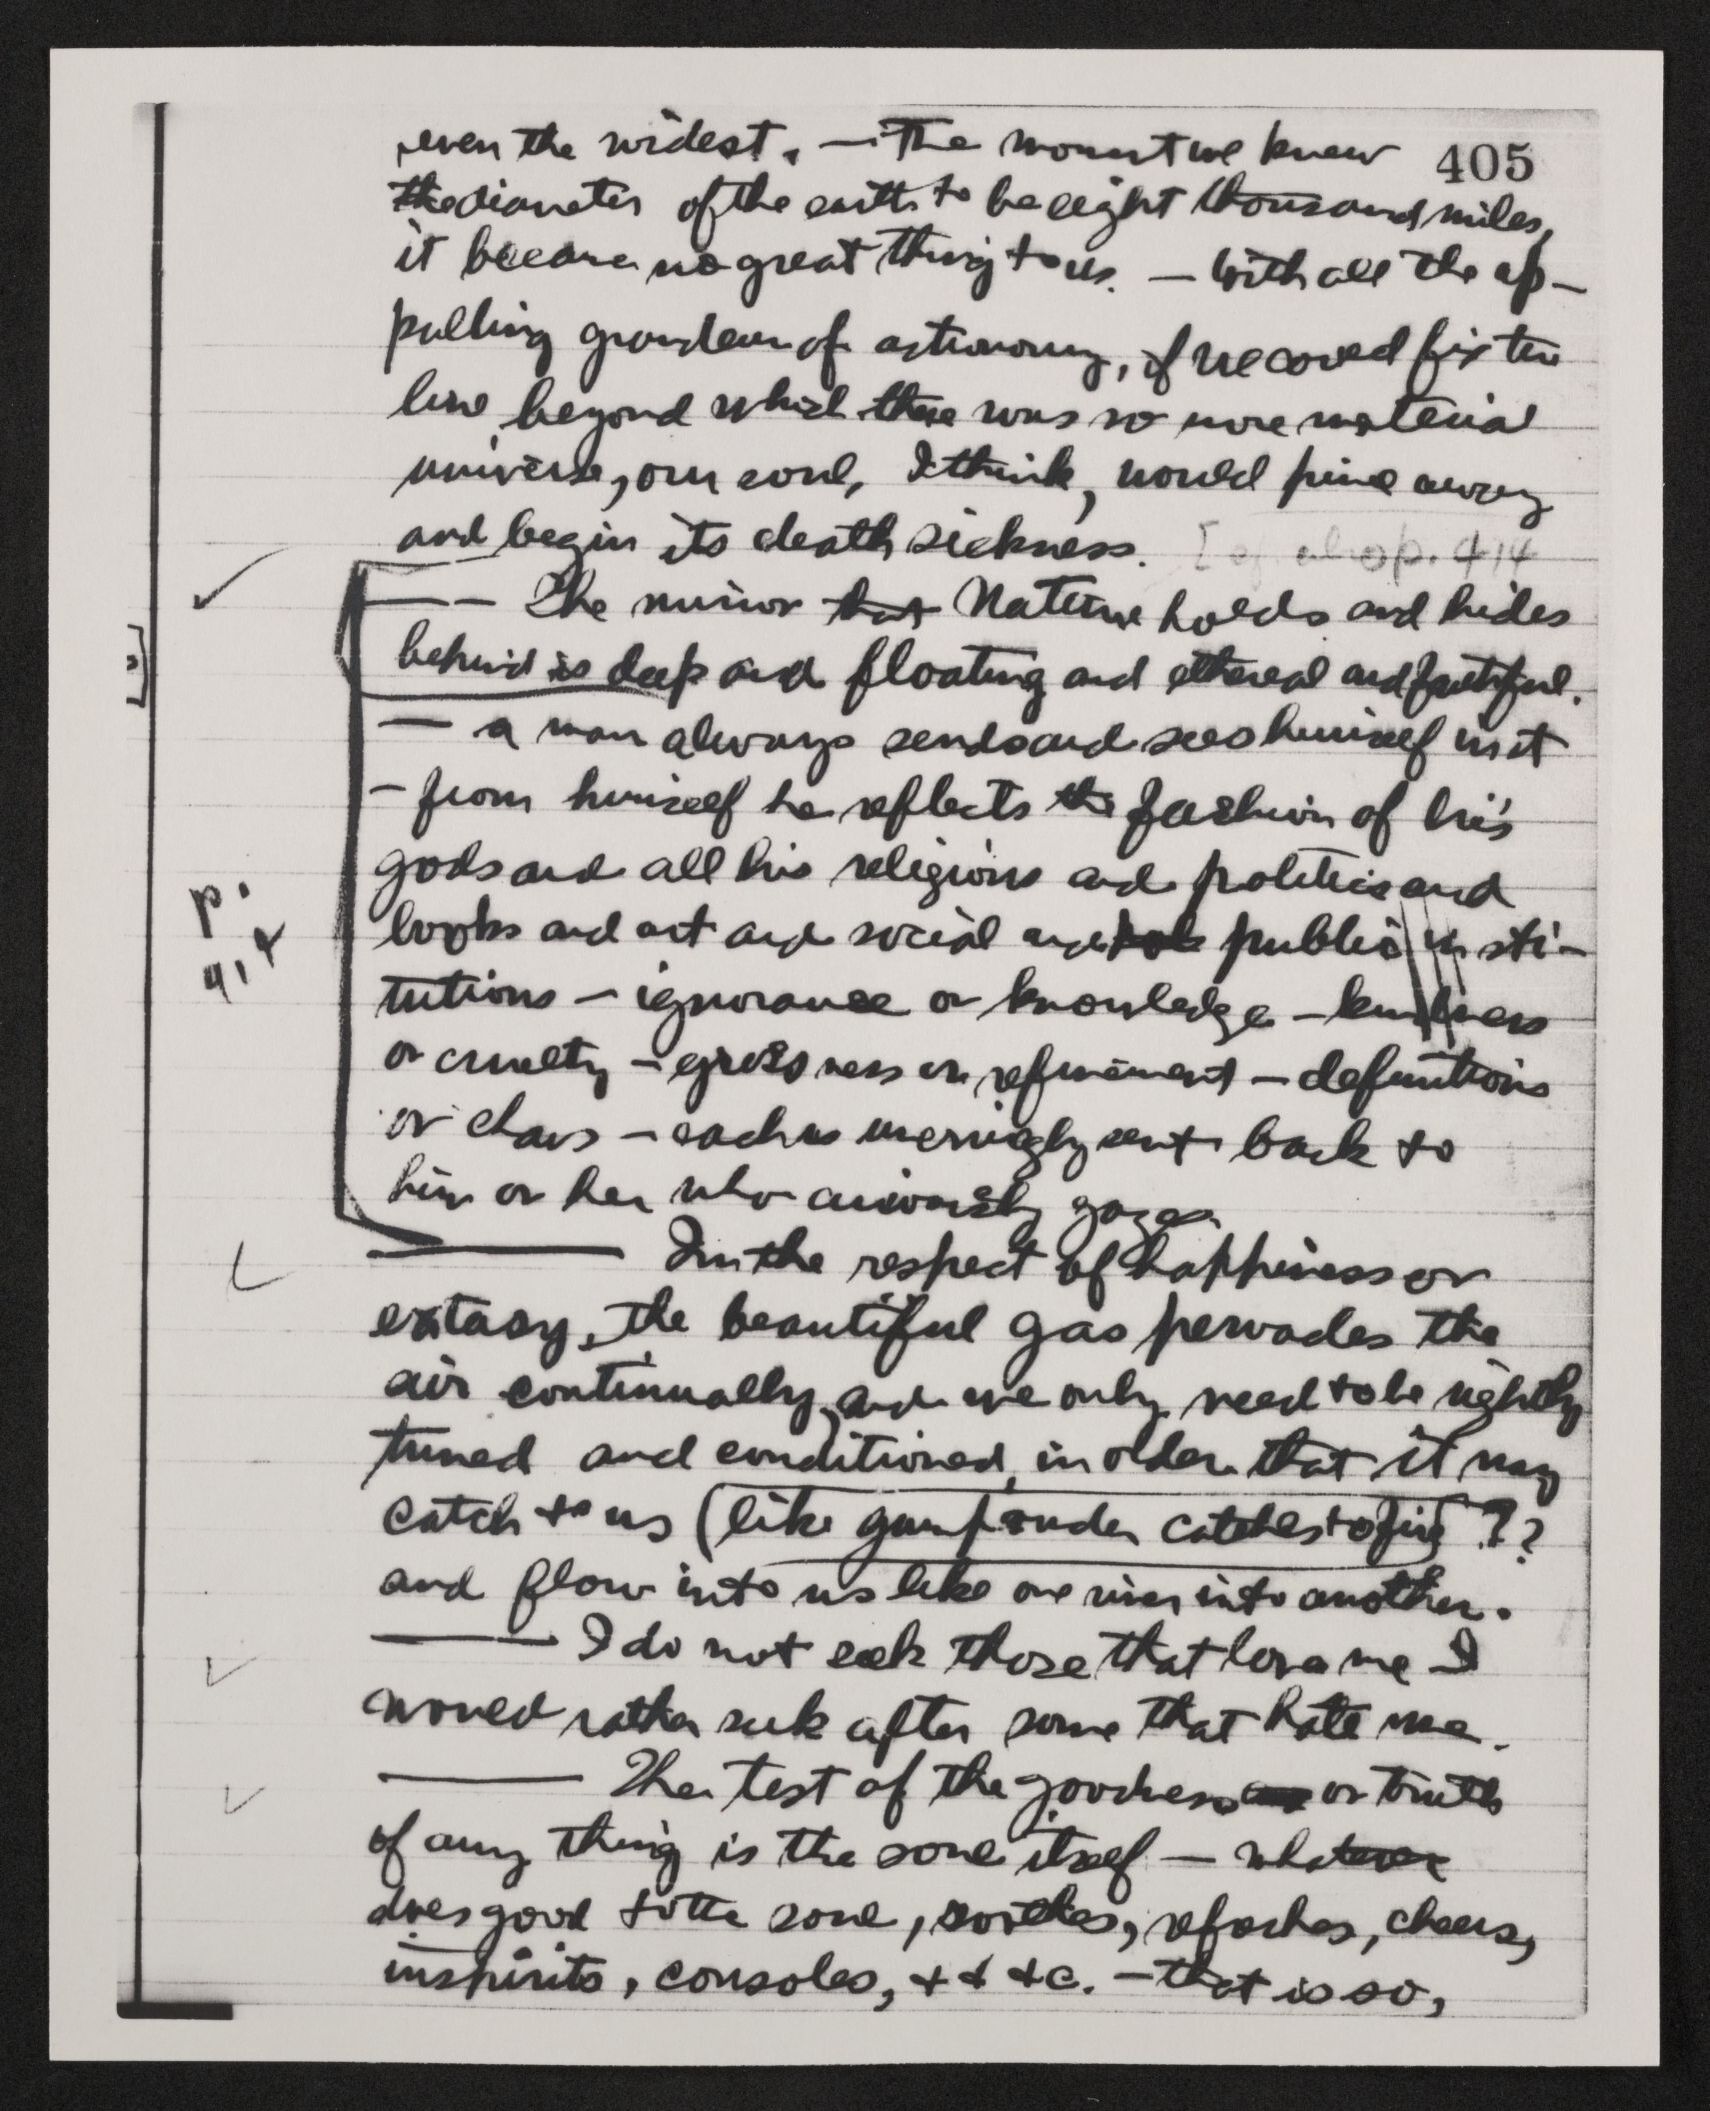 405
even the widest. — The moment we know
the diameter of the earth to be eight thousand miles,
it became no great thing to us. — With all the ap-
palling grandeur of astronomy, if we could fix the
line beyond which there was no more material
universe, our soul, I think, would pine away
and begin its death sickness. [cf. also p. 414
—— The mirror that Nature holds and hides
behind is deep and floating and ethereal and faithful.
— a man always sends and sees himself in it
— from himself he reflects the fashion of his
gods and all his religions and politics and
p. 414
books and art and social and public insti-
tutions — ignorance or knowledge — kindness
or cruelty — grossness or refinement — definitions
or chaos — each is unerringly sent back to
him or her who curiously gazes.
—— In the respect of happiness or
extasy, the beautiful gas pervades the
air continually, and we only need to be rightly
tuned and conditioned, in order that it may
catch to us (like gunpowder catches to fire) ??
and flow into us like one river into another.
—— I do not seek those that love me I
would rather seek after some that hate me.
—— The test of the goodness or truth
of any thing is the soul itself — whatever
does good to the soul, soothes, refreshes, cheers,
inspirits, consoles, & & &c. — that is so,